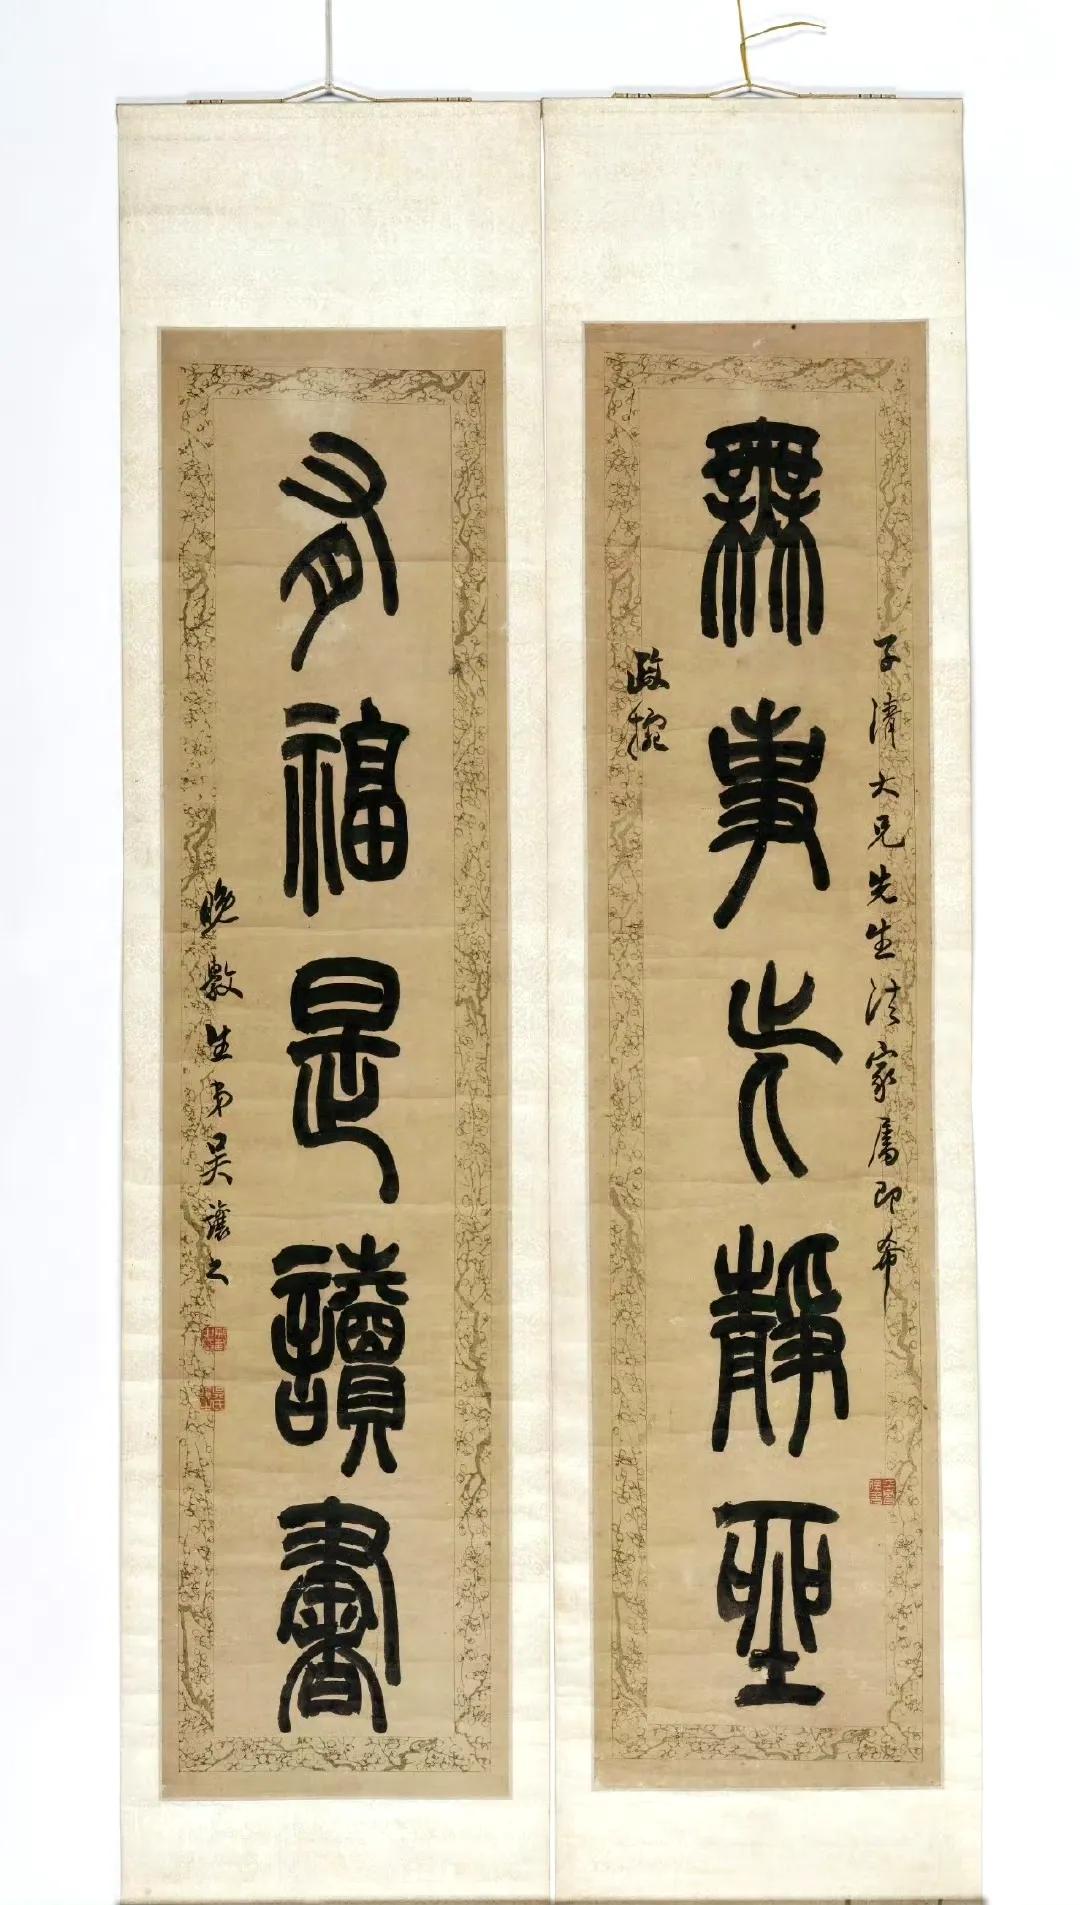 無事此靜坐
子清大兄先生法家屬即希
政捥
有福是讀書
晚斅生弟吳讓之